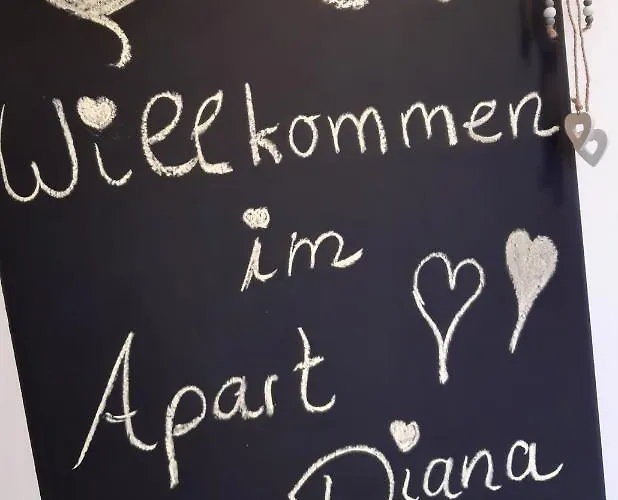 Willkommen
im
Apart
Diana